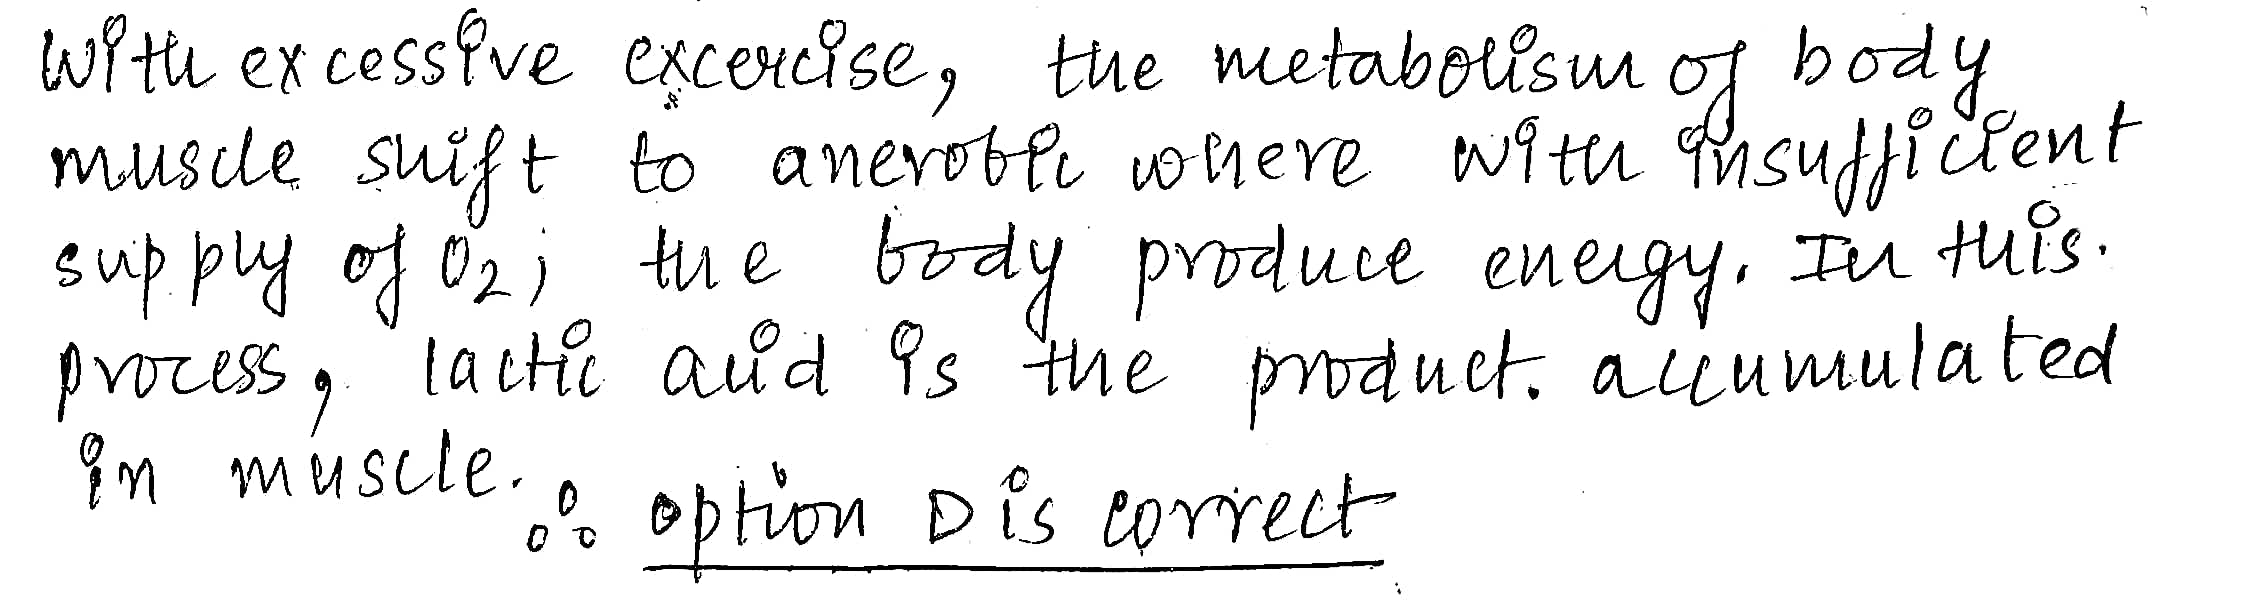 With excessive excercise, the metabolism of body
muscle shift to anerobic where with insufficient
supply of O2; the body produce energy. In this.
process, lactic acid is the product. accumulated
in muscle.
∴ option D is correct